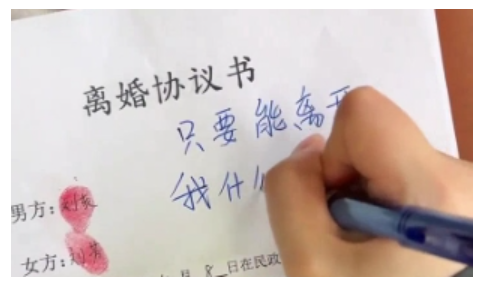 离婚协议书
只要能离开
我什
男方：刘
女方：刘英
月 8 日在民政